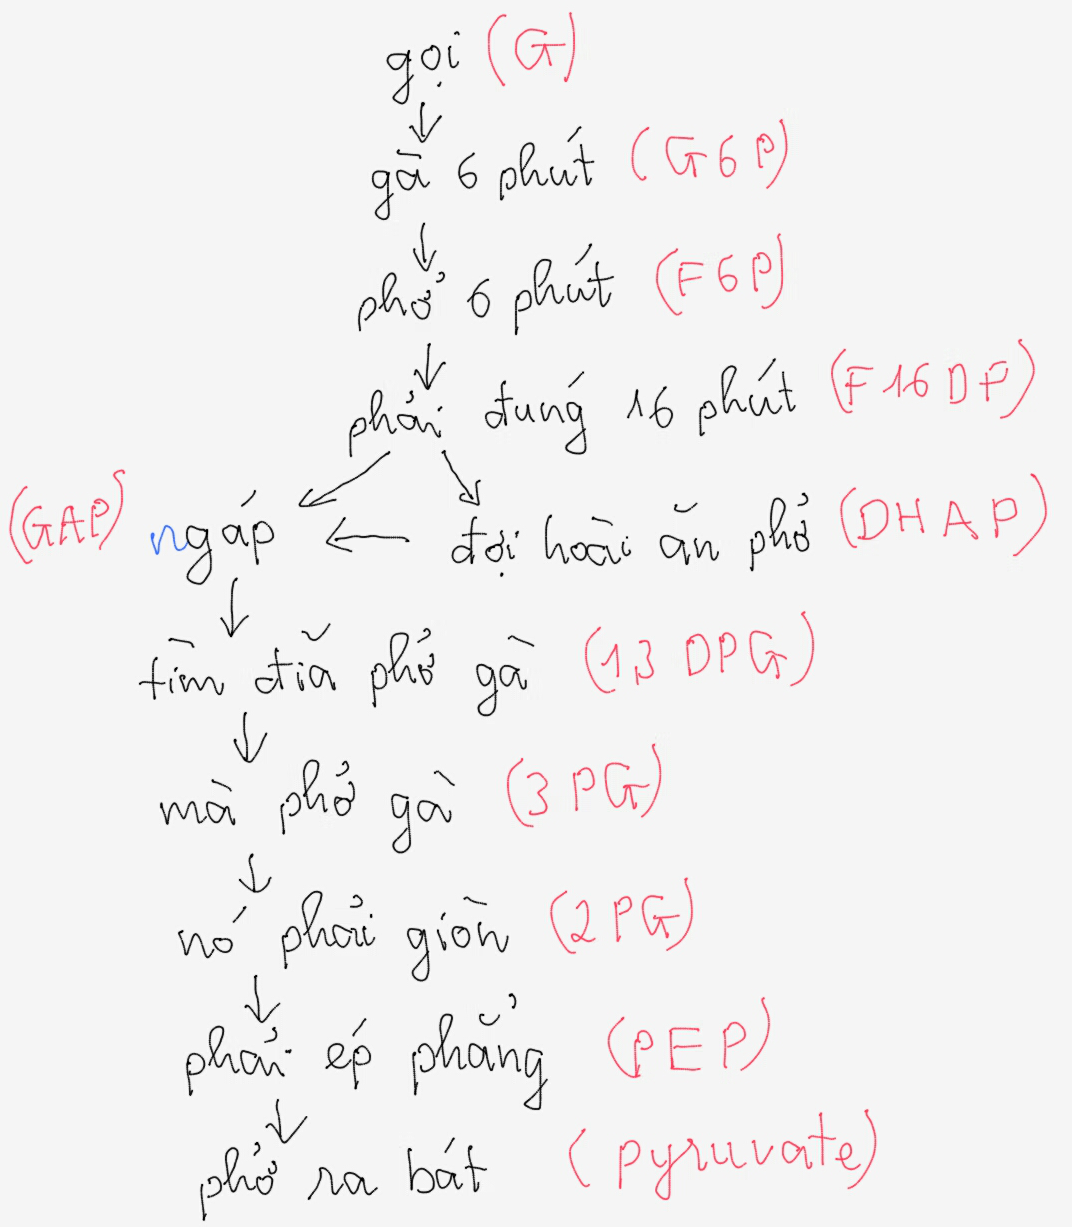 gọi (G)
gà 6 phút (G6P)
phở 6 phút (F6P)
phải đung 16 phút (F16DP)
(GAP) ngáp đợi hoài ăn phở (DHAP)
tìm đĩa phở gà (13 DPG)
mà phở gà (3 PG)
nó phải giòn (2 PG)
phải ép phẳng (PEP)
phở ra bát (pyruvate)